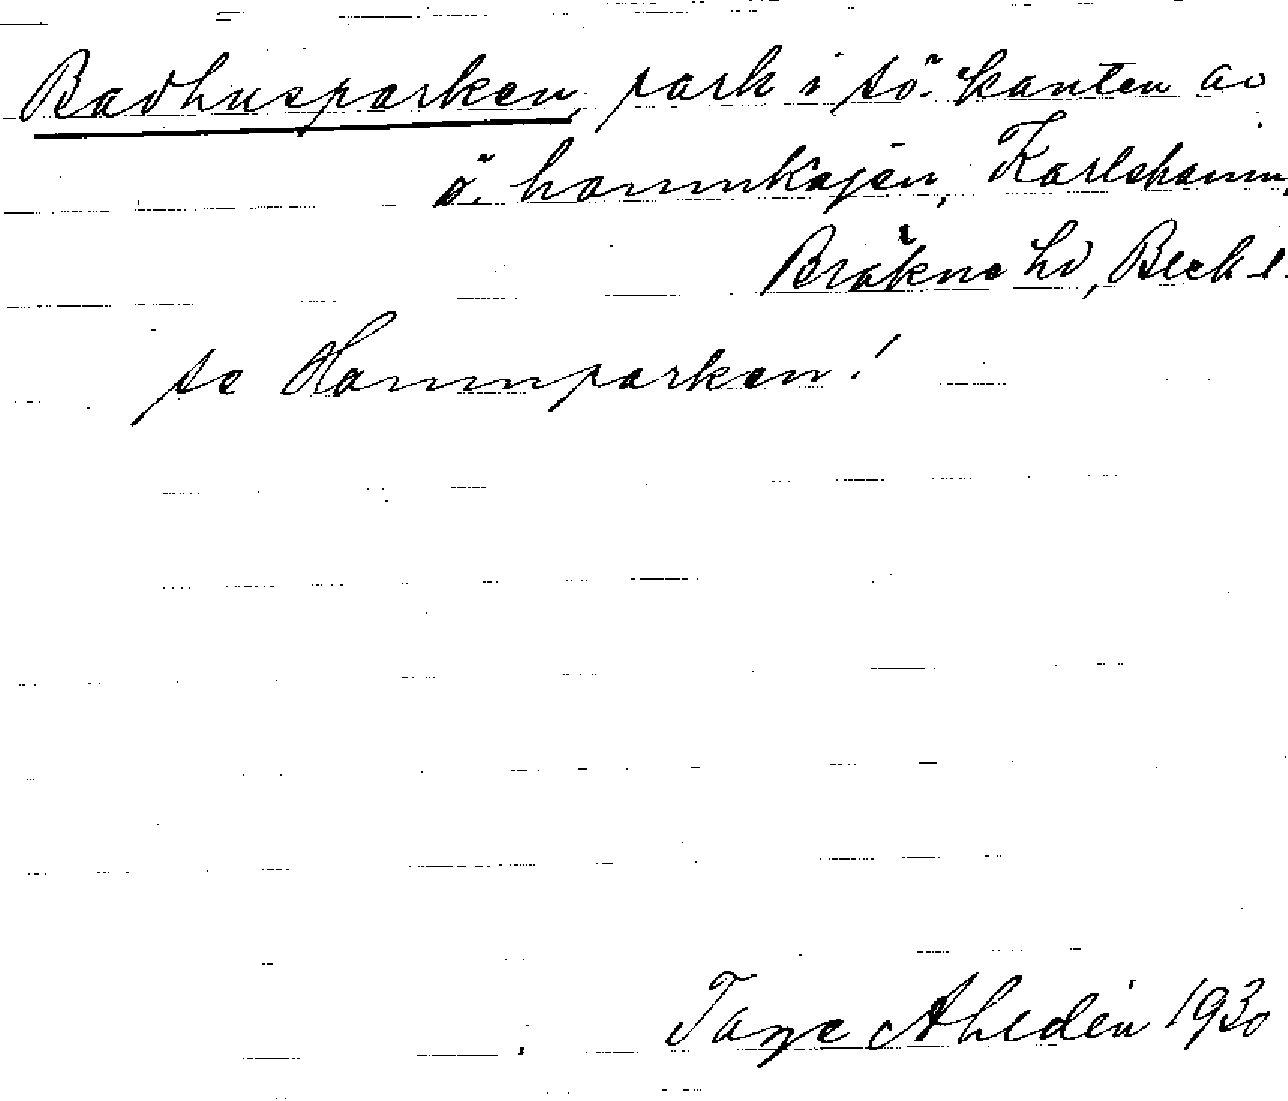 Badhusparken, park i sö. kanten av
ö. hamnkajen, Karlshamn,
Bräkne hd, Blek l.
se Hamnparken!
Tage Ahldén 1930